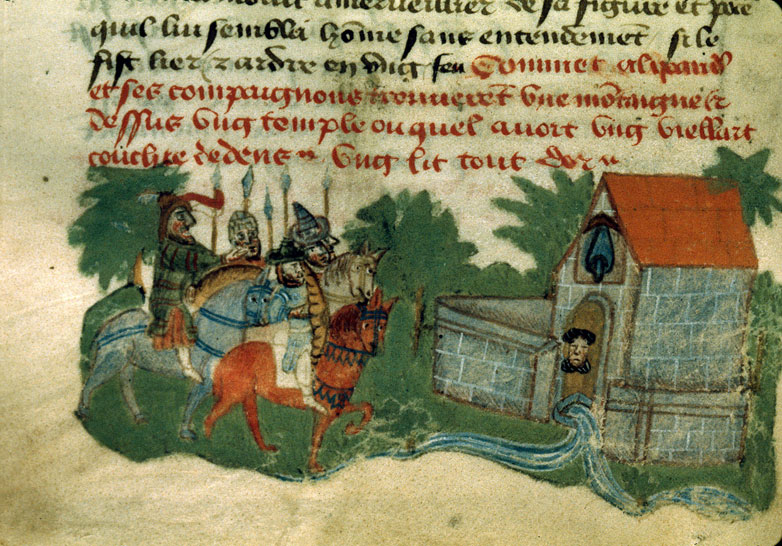 quil luy sembla home sans entendement si le
fist lier & ardre en ung feu Comment alixandre
et ses compaignons trouverent une montaigne &
dessus ung temple ouquel avoit ung viellart
couchie dedens ung lit tout dor